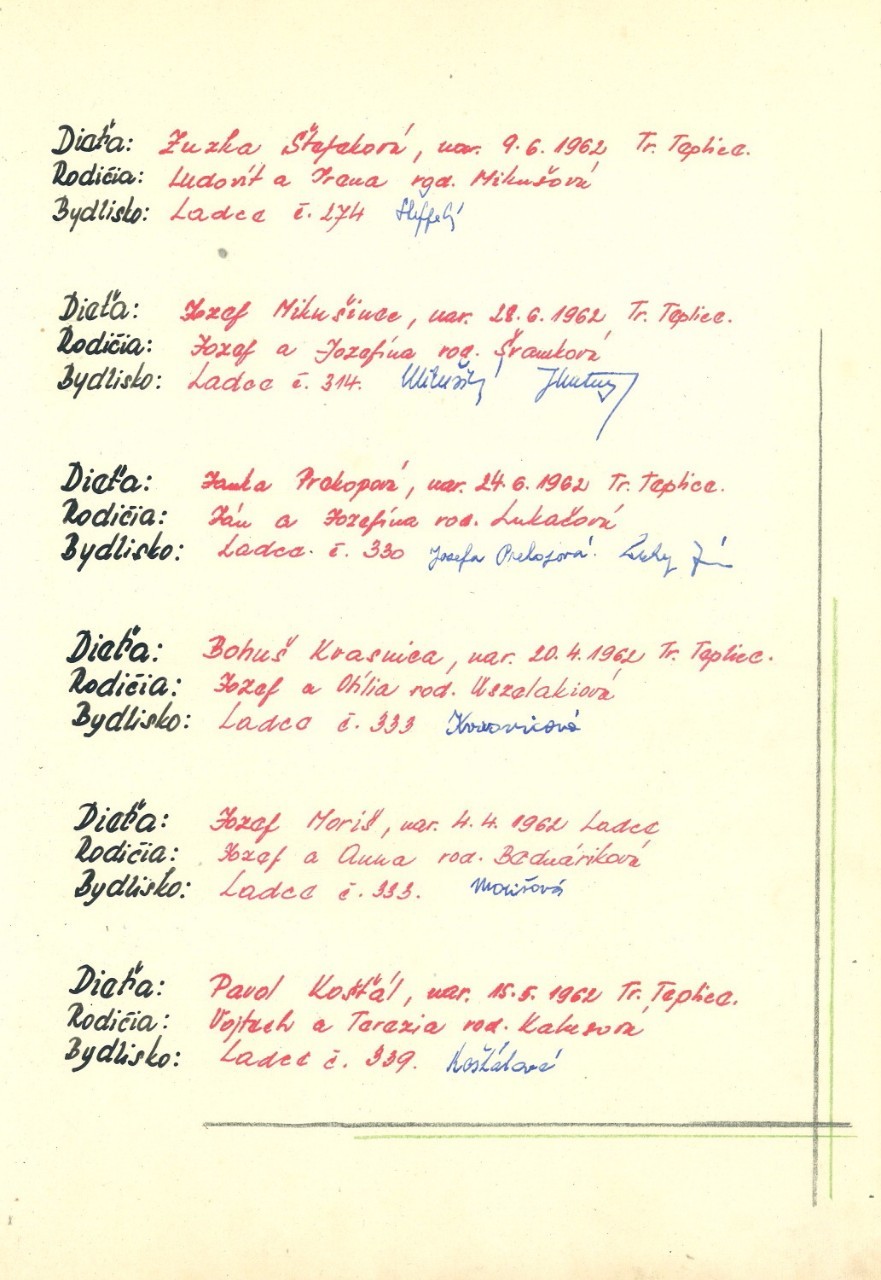 Dieťa: Zuzka Štefeková, nar. 9.6.1962 Tr. Teplice.
Rodičia: Ludovít a Irena rod. Mikušová
Bydlisko: Ladce č. 274
Dieťa: Jozef Mikušinec, nar. 28.6.1962 Tr. Teplice.
Rodičia: Jozef a Jozefína rod. Šramková
Bydlisko: Ladce č. 314.
Dieťa: Janka Prekopová, nar. 24.6.1962 Tr. Teplice.
Rodičia: Ján a Jozefína rod. Lukačová
Bydlisko: Ladce. č. 330 Jozefa Prekopová.
Dieťa: Bohuš Kvasnica, nar. 20.4.1962 Tr. Teplice.
Rodičia: Jozef a Otília rod.
Bydlisko: Ladce č. 333
Dieťa: Jozef Moriš, nar. 4.4.1962 Ladce
Rodičia: Jozef a Anna rod. Bednáriková
Bydlisko: Ladce č. 333. Morišová
Dieťa: Pavol Košťál, nar. 15.5.1962 Tr. Teplice.
Rodičia: Vojtech a Terezia rod.
Bydlisko: Ladce č. 339. Košťálová